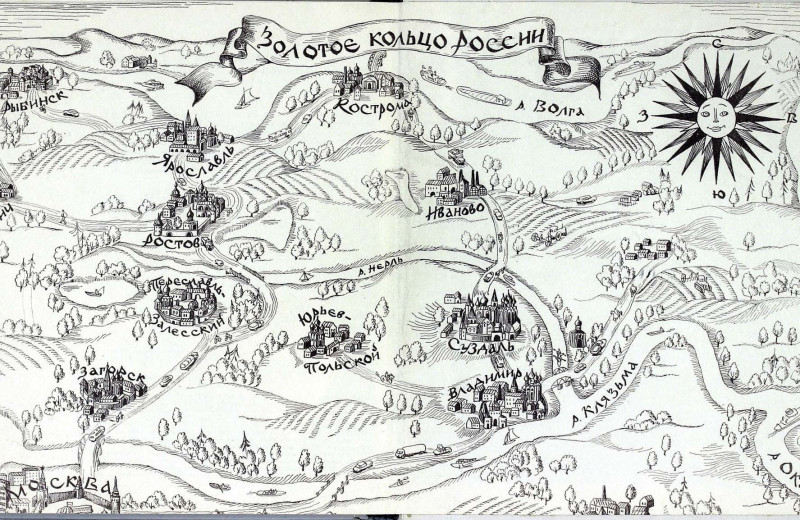 Золотое кольцо России
С
З
В
Ю
Рыбинск
Кострома
р. Волга
Ярославль
Иваново
Ростов
р. Нерль
Переславль-
Залесский
Юрьев-
Польской
Суздаль
Загорск
Владимир
р. Клязьма
Москва